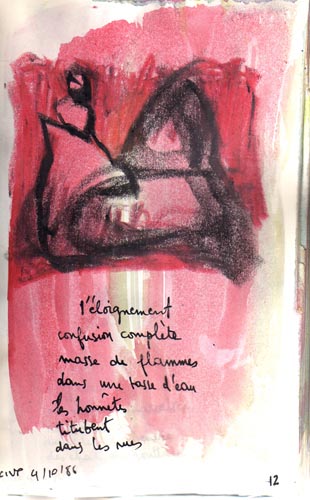 l'éloignement
confusion complète
masse de flammes
dans une tasse d'eau
les honnêtes
titubent
dans les rues
CIVP 4/10/86
12